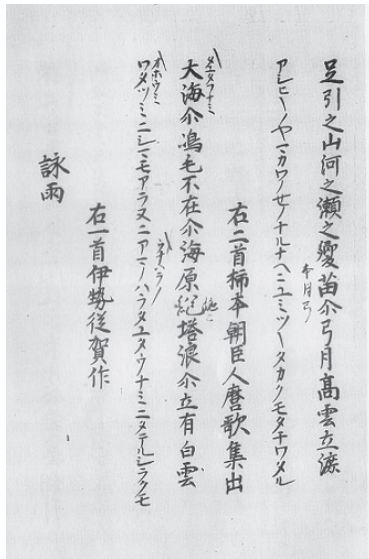 足引之山河之瀬之響苗尒弓月高雲立渡
アシヒキノヤマカワノセノナルナヘニユミツキタカクモタチワタル
右二首柿本朝臣人麿歌集出
大海尒嶋毛不在尒海原絶塔浪尒立有白雲
オホウミ
ワタツミニシマモアラヌニアマノハラタユタウナミニタテルシラクモ
右一首伊勢従賀作
詠雨